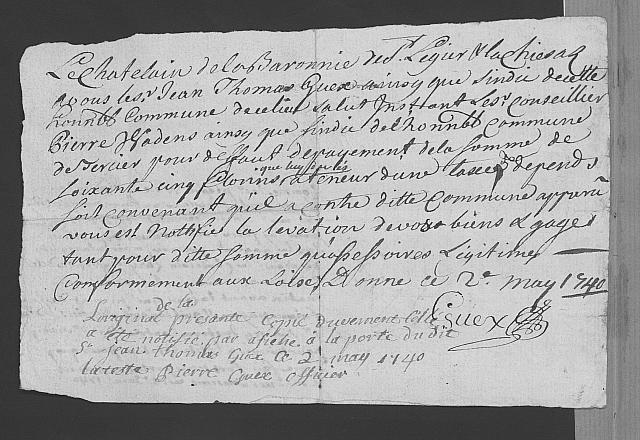 Le Chatelain de la Baronnie de St. Legier & la Chiesaz
a vous le Sr. Jean Thomas Guex ainsy que sindic de cette
honnble Commune de ce lieu salut Instant le Sr. Conseillier
Pierre ainsy que sindic de l'honnble Commune
de pour deffaut de payement de la somme de
que luy
Soixante cinq florins a teneur d'une de depends
soit convenant qu'il a contre ditte Commune apparu
vous est Notifié la levation de vos biens & gages
tant pour ditte somme qu'assessoires Legitimes
Conformement aux Loise, Donne ce 2e. may 1740
Guex
de la
Loriginal presante Copie duement
a été notifié par afiche à la porte du dit
Sr. Jean Thomas Guex ce 2 may 1740
lateste Pierre Guex officier